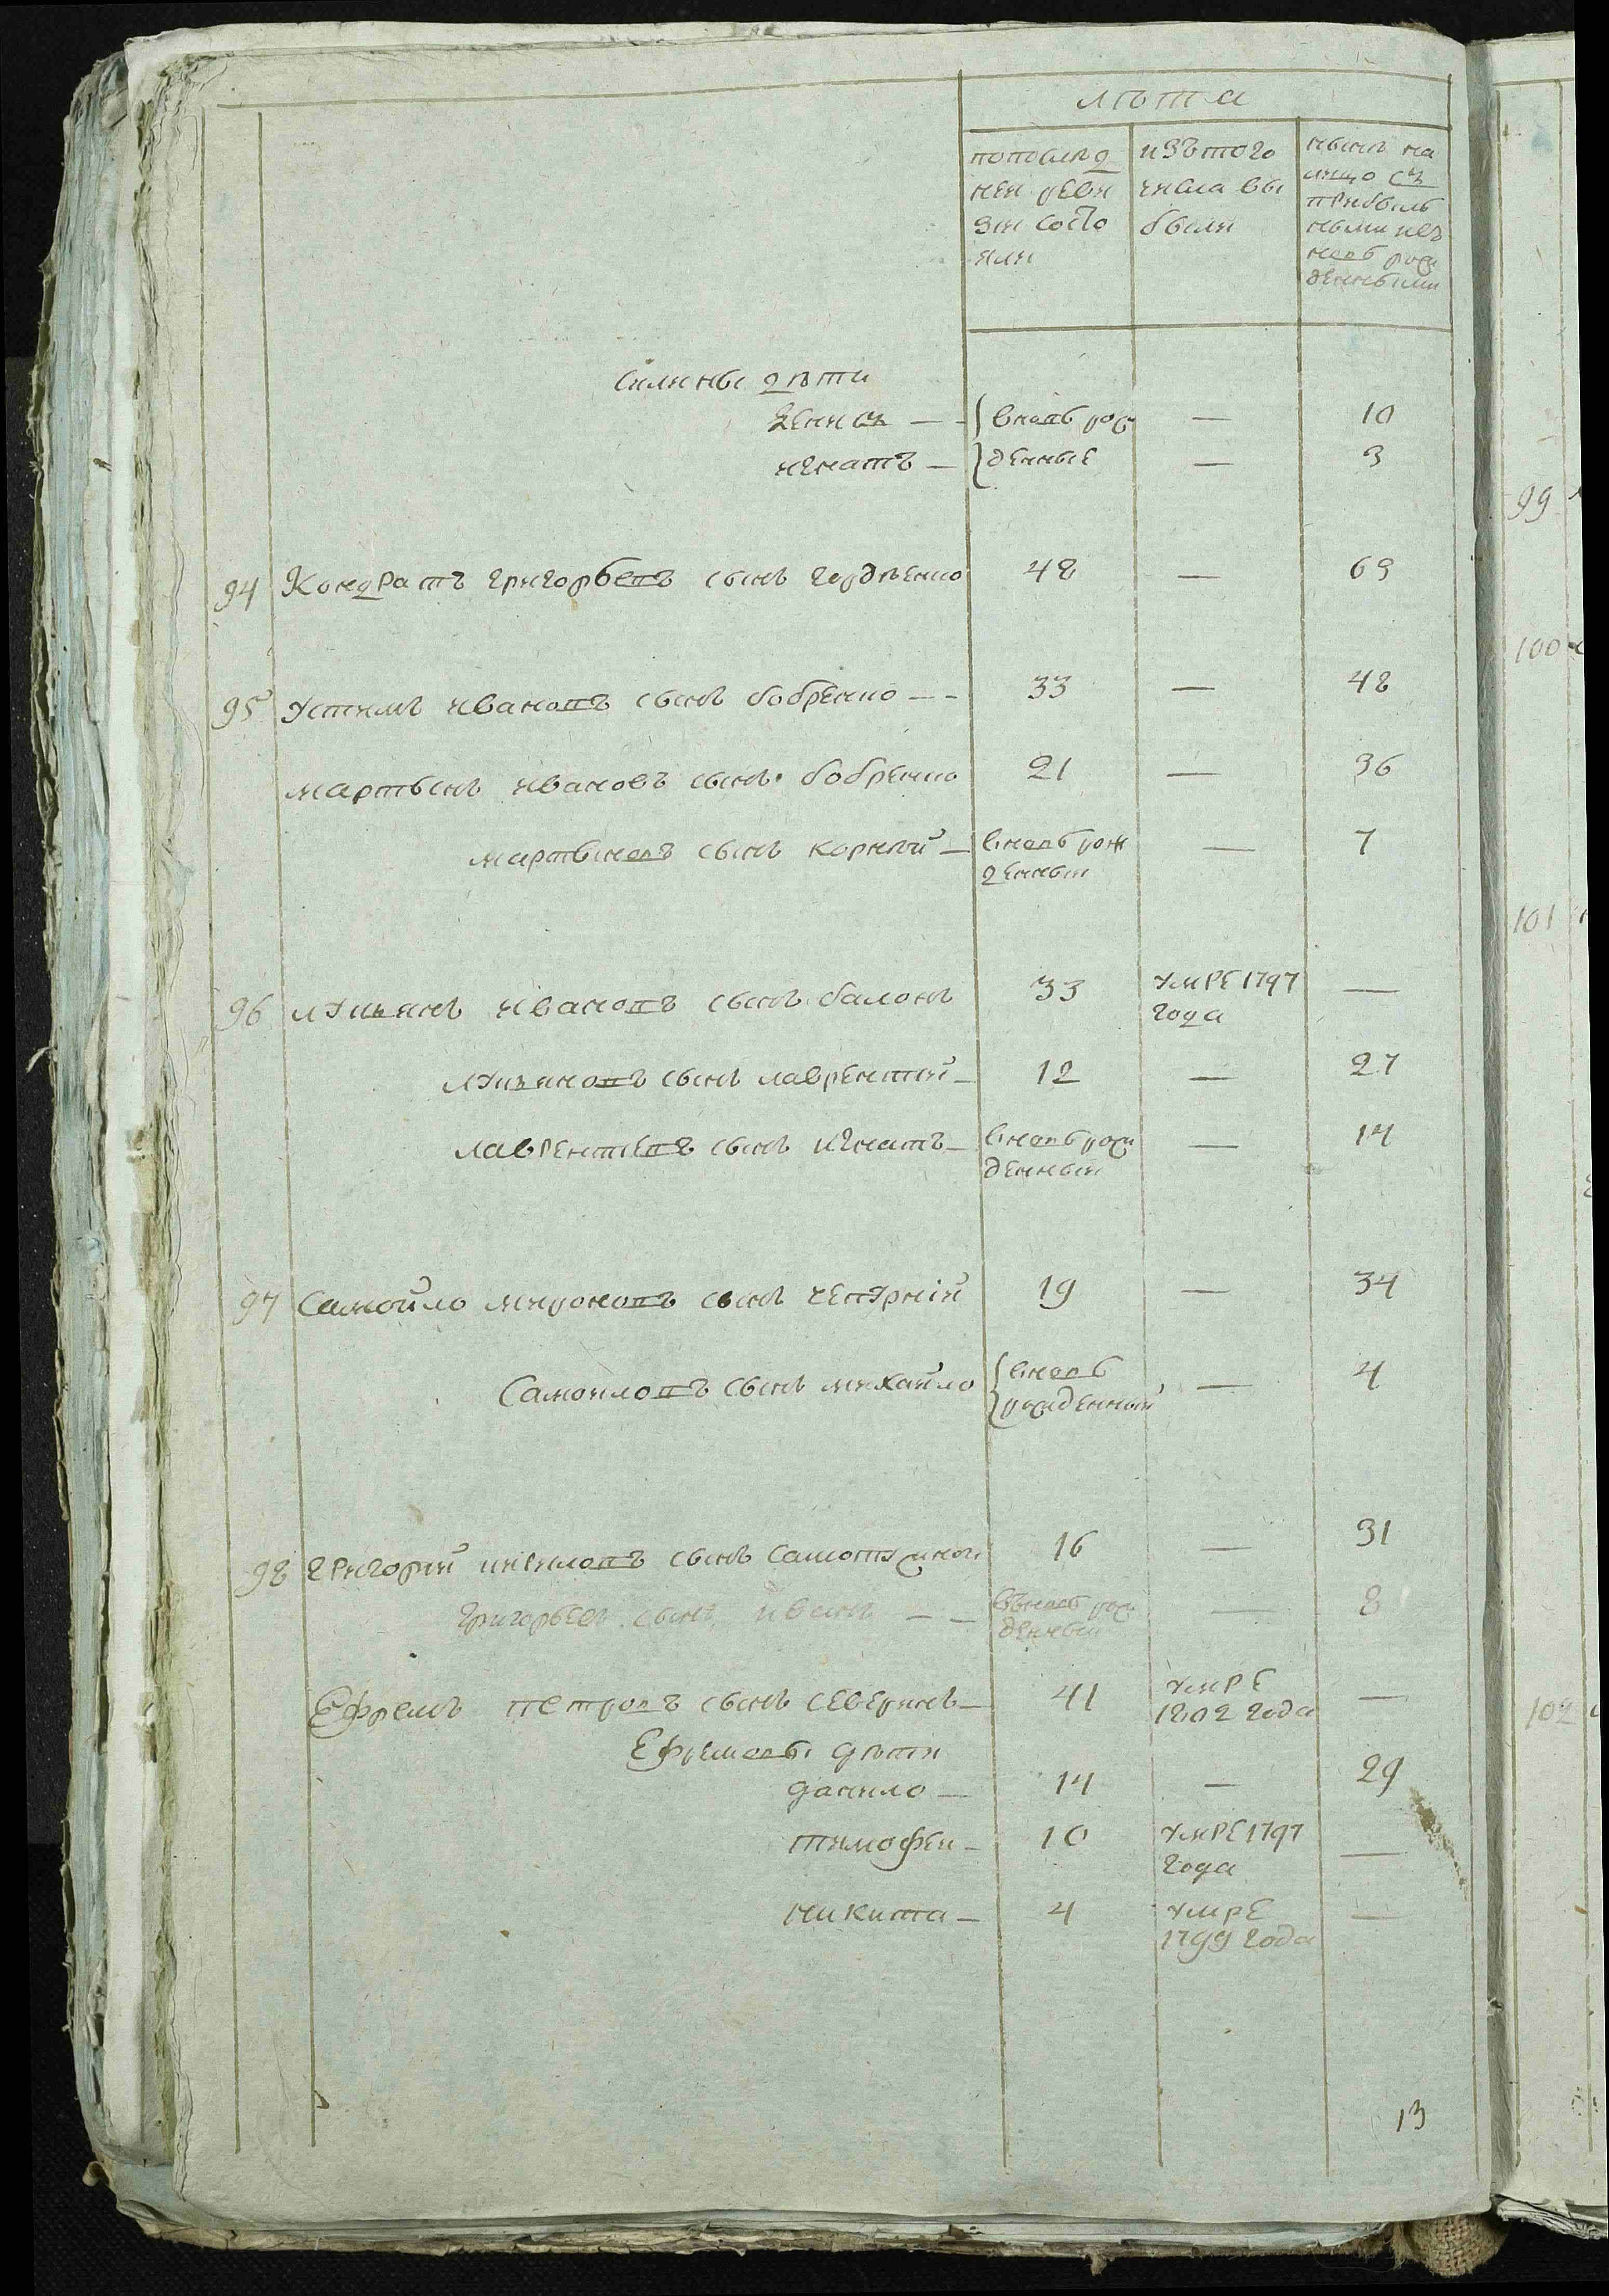 лѣта
попослѣд
ней реви
зіи состо
яли
изътого
числа вы
были
нынѣ на
лицо съ
прибыль
ными ивъ
новь рож
денными
Силины дѣти
Денисъ — вновь рож — 10
игнатъ — денные — 3
94 Кондратъ григорьевъ сынъ гордѣенко 48 — 63
95 устимъ ивановъ сынъ бобренко — — 33 — 48
мартынъ ивановъ сынъ бобренко 21 — 36
мартыновъ сынъ корнѣй — вновь рож — 7
денный
96 лукьянъ ивановъ сынъ балонъ 33 умре 1797 —
года
лукьяновъ сынъ лаврентий — 12 — 27
лаврентиевъ сынъ игнатъ — вновь рож — 14
денный
97 Самойло мироновъ сынъ чепурній 19 — 34
Самойловъ сынъ михайло вновь — 4
рожденный
98 григорий кириловъ сынъ 16 — 31
григорьевъ сынъ иванъ — — въновь рож — 8
денный
Ефремъ петровъ сынъ северинъ — 41 умре —
1802 года
Ефремовы дѣти
данило — 14 — 29
тимофей — 10 умре 1797 —
года
никита — 4 умре —
1799 года
13
99
100
101
102